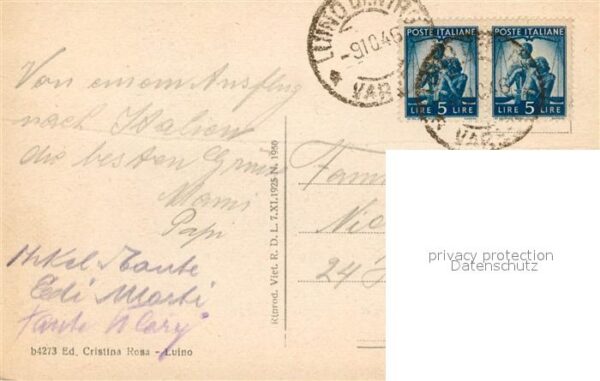 LUINO
-9.10.46
VAR
POSTE ITALIANE
LIRE 5 LIRE
POSTE ITALIANE
LIRE 5 LIRE
Von einem Ausflug
nach Italien
die besten Grüsse
Mami
Papi
Onkel Tante
Edi Marti
Tante Klary
b4273 Ed. Cristina Rosa - Luino
Riprod. Viet. R. D. L. 7.XI.1925 N. 1950
Fam
24
privacy protection
Datenschutz